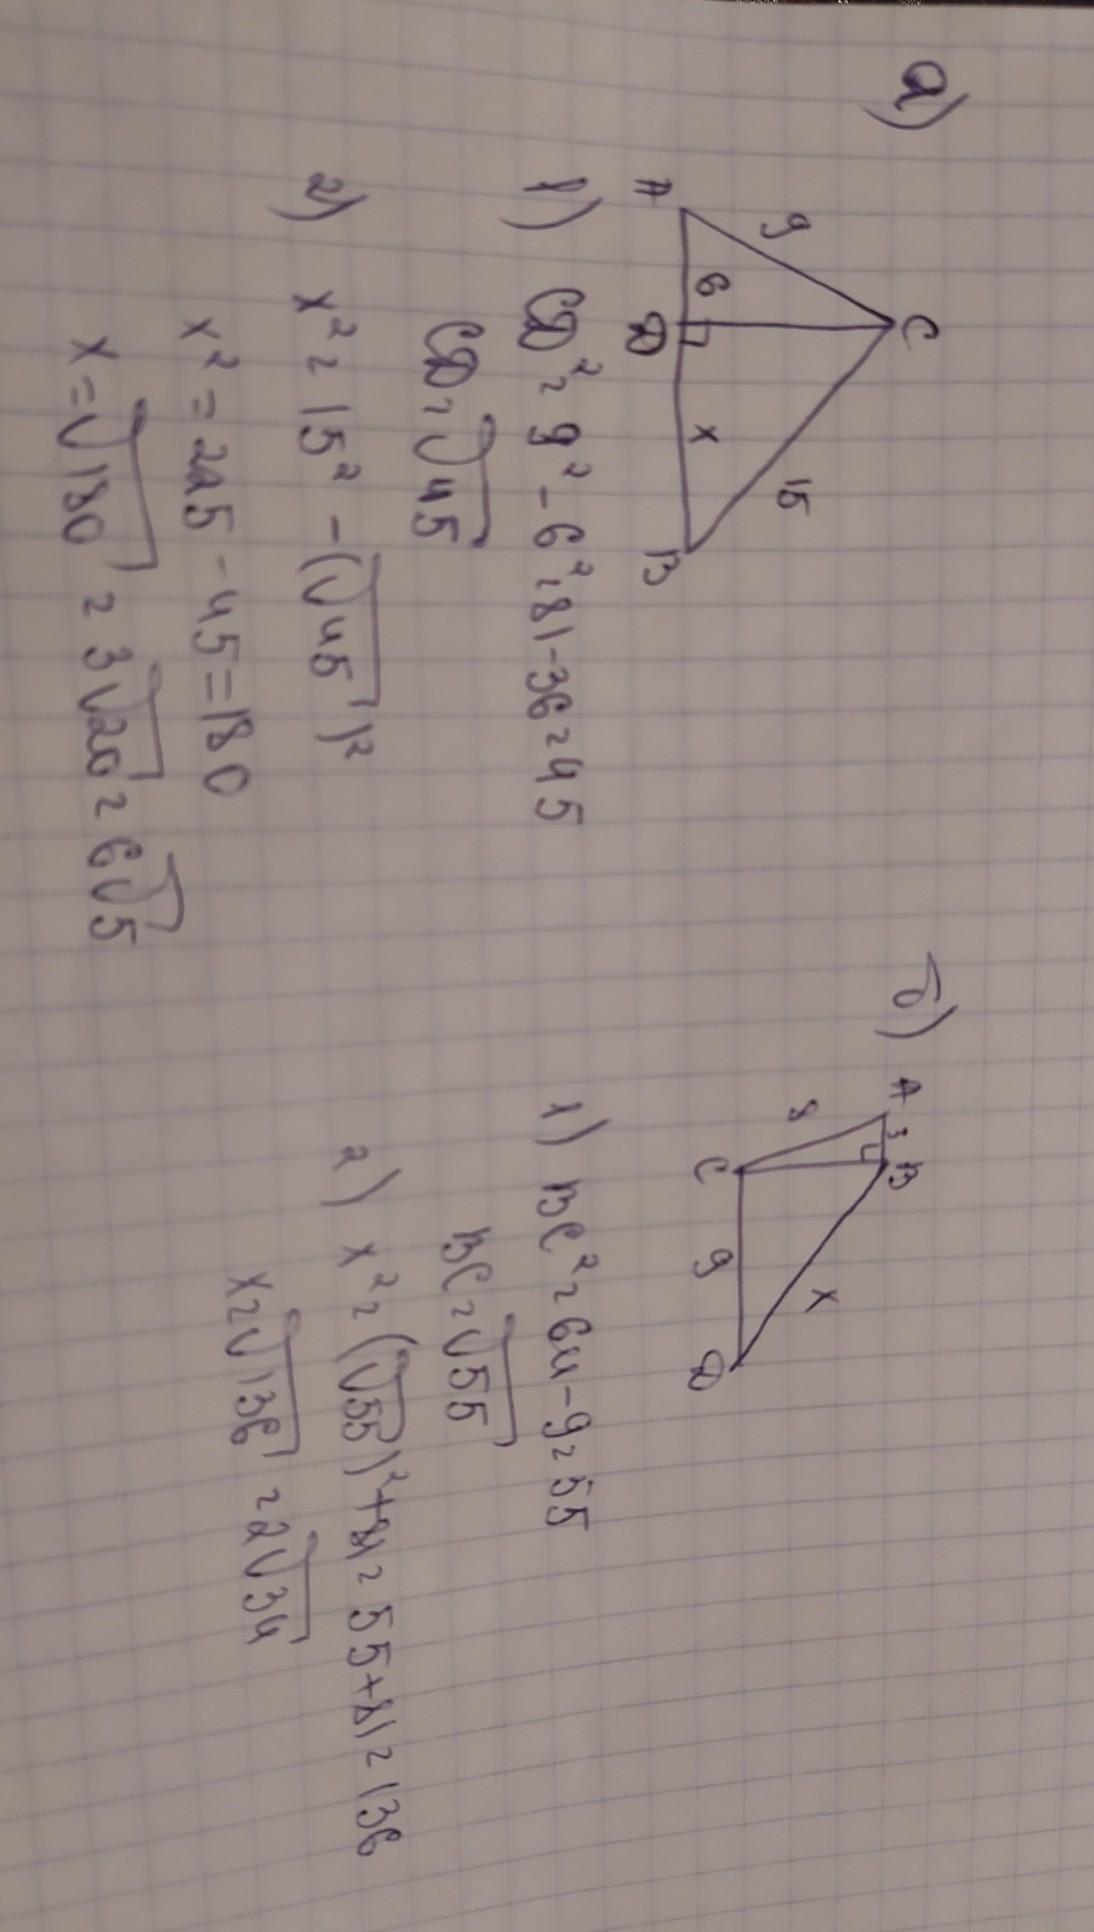 а)
C
9
15
6
x
A
D
B
1) CD² = 9² - 6² = 81 - 36 = 45
CD = √45
2) x² = 15² - (√45)²
x² = 225 - 45 = 180
x = √180 = 3√20 = 6√5
б)
A
3
B
8
x
C
9
D
1) BC² = 64 - 9 = 55
BC = √55
2) x² = (√55)² + 81 = 55 + 81 = 136
x = √136 = 2√34